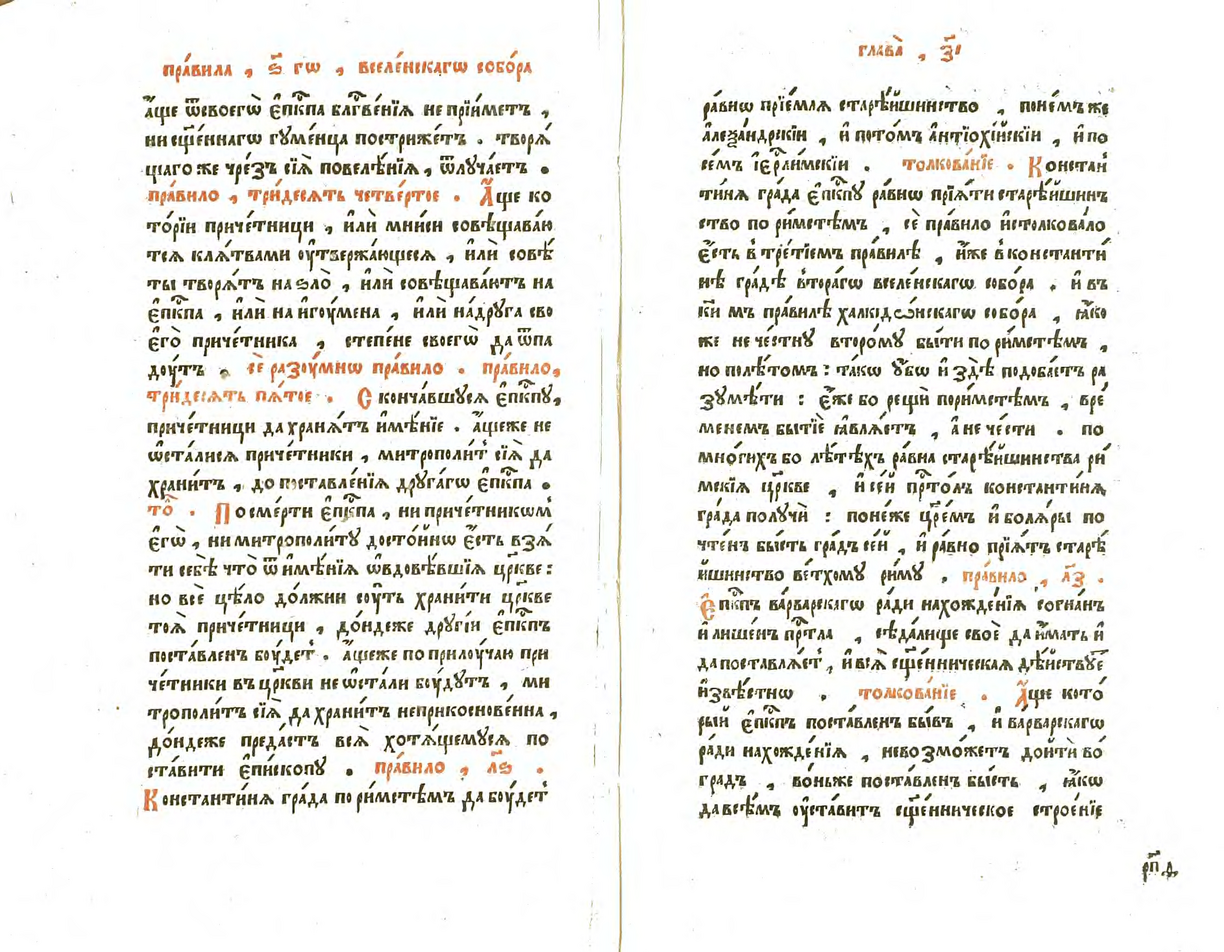 пра́вила , ѕ҃ гѡ , вселе́нскагѡ собо́ра
а҆́ще ѿсвоегѡ̀ є҆пк҃па блг҃ве́нїѧ не прїи́метъ ,
ни сщ҃е́ннагѡ гуме́нца постриже́тъ . творѧ́
щаго же чре́зъ сїѧ̀ повелѣ́нїѧ , ѿлуча́етъ .
пра́вило , три́десѧть четве́ртое . А҆́ще ко
то́рїи приче́тници , и҆лѝ мни́си совѣщава́ю
тсѧ клѧ́твами оу҆твержа́ющесѧ , и҆лѝ совѣ́
ты творѧ́тъ на ѕло̀ , и҆лѝ совѣщава́ютъ на
є҆пк҃па , и҆лѝ на и҆гоу́мена , и҆лѝ на́друга сво
є҆го̀ приче́тника , степе́не своегѡ̀ да ѿпа
доу́тъ . сѐ разоу́мнѡ пра́вило . пра́вило,
три́десѧть пѧ́тое . Сконча́вшусѧ є҆пк҃пу,
приче́тници да хранѧ́тъ и҆мѣ́нїе . а҆́щеже не
ѡ҆ста́лисѧ приче́тники , митрополи́т сїѧ̀ да
храни́тъ , до поставле́нїѧ друга́гѡ є҆пк҃па .
то́ . По сме́рти є҆пк҃па , ни приче́тникѡм
є҆гѡ̀ , ни митрополи́ту досто́йнѡ є҆́сть взѧ́
ти себѣ̀ что̀ ѿ и҆мѣ́нїѧ ѡ҆вдовѣ́вшїѧ цр҃кве :
но всѐ цѣ́ло до́лжни соу́ть храни́ти цр҃кве
тоѧ̀ приче́тници , до́ндеже другі́й є҆пк҃пъ
поста́вленъ боу́дет . а҆́щеже по прилоу́чаю при
че́тники въ цр҃кви не ѡ҆ста́ли боу́дутъ , ми
трополи́тъ сїѧ̀ да храни́тъ неприкоснове́нна ,
до́ндеже преда́стъ всѧ̀ хотѧ́щемусѧ по
ста́вити є҆пи́скопу . пра́вило , л҃ѕ .
Константи́нѧ гра́да по ри́мстѣмъ да боу́дет
глава̀ , з҃
ра́внѡ прїе́млѧ старѣ́йшинство , поне́мъ же
а҆леѯандрскїи , и҆ пото́мъ а҆нтїохі́йскїи , и҆ по
се́мъ і҆ер҃ли́мскїи . толкова́нїе . Констан
ти́нѧ гра́да є҆пк҃пу ра́внѡ прїѧ́ти старѣ́йшин
ство по ри́мстѣмъ , сѐ пра́вило и҆столкова́ло
є҆́сть в тре́тїемъ пра́вилѣ , и҆́же в константи́
нѣ гра́дѣ вторагѡ вселе́нскагѡ собо́ра . и҆ въ
к҃и мъ пра́вилѣ халкідѡ́нскагѡ собо́ра , ꙗ҆́ко
же не че́стну второ́му бы́ти по ри́мстѣмъ ,
но по лѣ́томъ : та́кѡ у҆́бѡ и҆ здѣ̀ подоба́етъ ра
зумѣ́ти : є҆́же бо рещѝ пори́мстѣмъ , вре́
менемъ бытїѐ ꙗ҆влѧ́етъ , а҆ не че́сти . по
мно́гихъ бо лѣ́тѣхъ ра́вна старѣ́йшинства ри́
мскїѧ цр҃кве , и҆ се́й пр҃то́лъ константи́нѧ
гра́да получѝ : поне́же цр҃е́мъ и҆ болѧ́ры по
чте́нъ бы́сть гра́дъ се́й , и҆ ра́вно прїѧ́тъ старѣ́
йшинство ве́тхому ри́му . пра́вило , л҃з .
Є҆пк҃пъ ва́рварскагѡ ра́ди нахожде́нїѧ согна́нъ
и҆ лише́нъ пр҃тла , сѣда́лище своѐ да и҆́мать и҆
да поставлѧ́ет , и҆ всѧ̀ сщ҃е́нническаѧ дѣ́йствуе
и҆звѣ́стнѡ . толкова́нїе . А҆́ще кото́
рый є҆пк҃пъ поста́вленъ бы́въ , и҆ ва́рварскагѡ
ра́ди нахожде́нїѧ , невозмо́жетъ доитѝ во́
градъ , во́ньже поста́вленъ бы́сть , ꙗ҆́кѡ
да всѣ́мъ оу҆ста́витъ сщ҃е́нническое строе́нїе
рп҃д